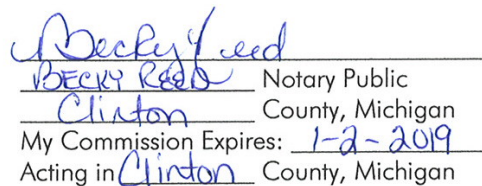 Becky Reed
BECKY REED Notary Public
Clinton County, Michigan
My Commission Expires: 1-2-2019
Acting in Clinton County, Michigan